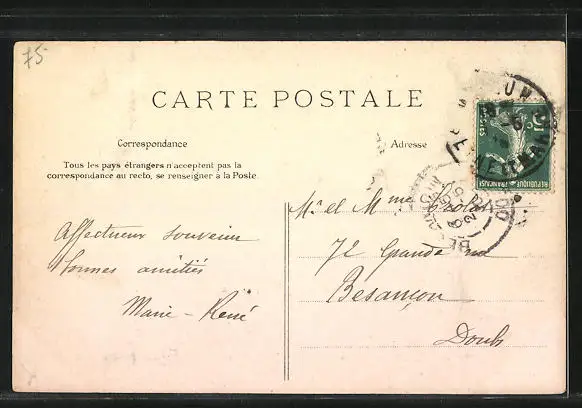 75
CARTE POSTALE
Correspondance
Tous les pays étrangers n'acceptent pas la
correspondance au recto, se renseigner à la Poste.
Adresse
RÉPUBLIQUE FRANÇAISE
POSTES
Affectueux souvenir
bonnes amitiés
Marie - René
Mr et Mme
72 Grande rue
Besançon
Doubs